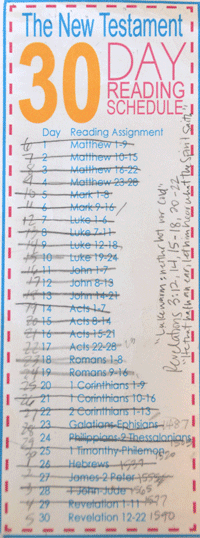 The New Testament
30 DAY
READING
SCHEDULE
Day Reading Assignment
1 Matthew 1-9
2 Matthew 10-15
3 Matthew 16-22
4 Matthew 23-28
5 Mark 1-8
6 Mark 9-16
7 Luke 1-6
8 Luke 7-11
9 Luke 12-18
10 Luke 19-24
11 John 1-7
12 John 8-13
13 John 14-21
14 Acts 1-7
15 Acts 8-14
16 Acts 15-21
17 Acts 22-28
18 Romans 1-8
19 Romans 9-16
20 1 Corinthians 1-9
21 1 Corinthians 10-16
22 2 Corinthians 1-13
23 Galatians-Ephisians 1487
24 Philippians-2 Thessalonians
25 1 Timothy-Philemon
26 Hebrews 1537
27 James-2 Peter
28 1 John-Jude 1565
29 Revelation 1-11 1577
30 Revelation 12-22 1590
"Lukewarm's neither hot nor cold"
Revelations 3:12, 14, 15-18, 20-22
"He that hath an ear, let him hear what the Spirit saith"